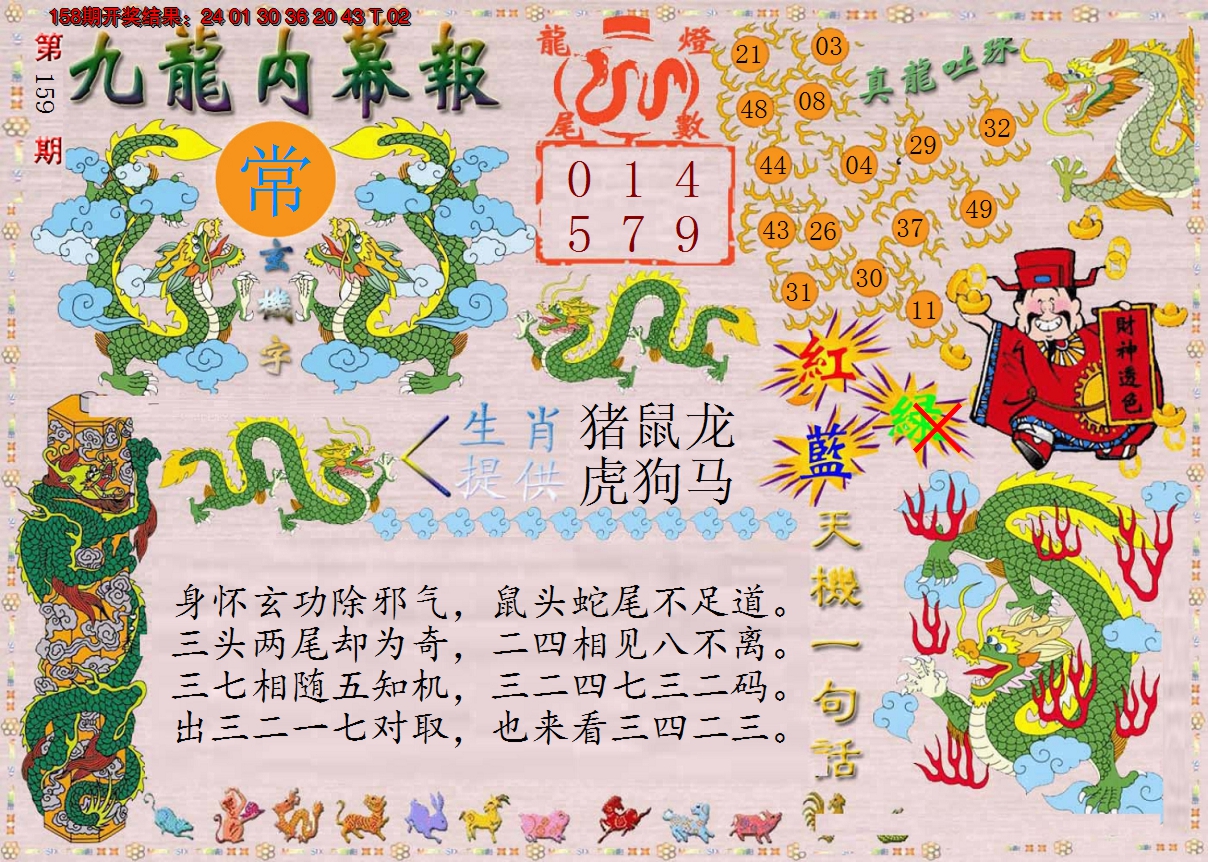 158期开奖结果：24 01 30 36 20 43 T 02
第159期
九龍内幕報
常
玄機字
龍燈
尾數
0 1 4
5 7 9
真龍吐珠
21 03
48 08
44 04 29 32
43 26 37 49
31 30 11
紅
綠
藍
財神透色
生肖提供
猪鼠龙
虎狗马
天機一句話
身怀玄功除邪气，鼠头蛇尾不足道。
三头两尾却为奇，二四相见八不离。
三七相随五知机，三二四七三二码。
出三二一七对取，也来看三四二三。